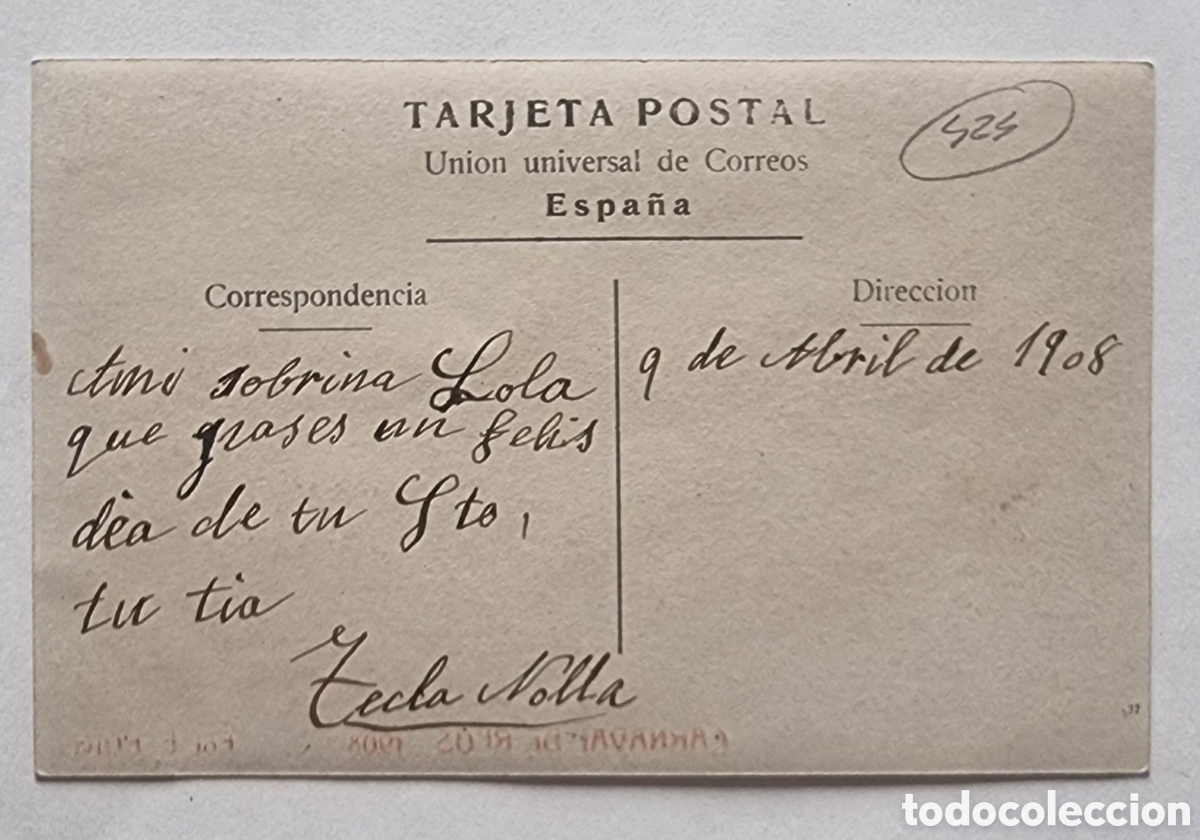 TARJETA POSTAL
Union universal de Correos
España
Correspondencia
Ami sobrina Lola
que grases un felis
dèa de tu Sto,
tu tia
Tecla Nolla
Direccion
9 de Abril de 1908
CARNAVAL DE REUS 1908
todocoleccion